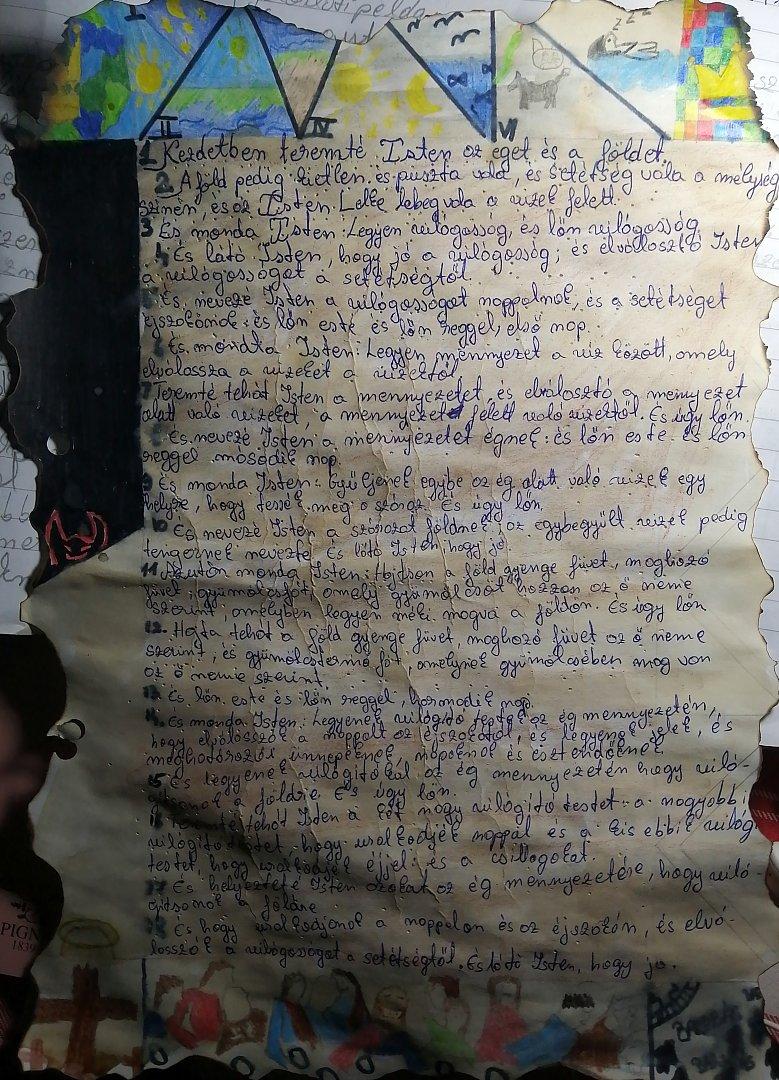 I
II
IV
VI
z z z
1 Kezdetben teremté Isten az eget és a földet.
2 A föld pedig kietlen és puszta vala, és setétség vala a mélység
színén, és az Isten Lelke lebeg vala a vizek felett.
3 És monda Isten: Legyen világosság, és lőn világosság.
4 És látá Isten, hogy jó a világosság; és elválasztá Isten
a világosságot a setétségtől.
És nevezé Isten a világosságot nappalnak, és a setétséget
éjszakának: és lőn este és lőn reggel, első nap.
És mondta Isten: Legyen mennyezet a víz között, amely
elválassza a vizeket a vizektől.
7 Teremté tehát Isten a mennyezetet, és elválasztá a mennyezet
alatt való vizeket, a mennyezet felett való vizektől. És úgy lőn.
És nevezé Isten a mennyezetet égnek: és lőn este és lőn
reggel, második nap.
9 És monda Isten: Gyűljenek egybe az ég alatt való vizek egy
helyre, hogy tessék meg a száraz. És úgy lőn.
10 És nevezé Isten a szárazat földnek; az egybegyűlt vizek pedig
tengernek nevezte. És látá Isten, hogy jó.
11 Azután monda Isten: Hajtson a föld gyenge füvet, maghozó
füvet, gyümölcsfát, amely gyümölcsöt hozzon az ő neme
szerint, amelyben legyen neki magva a földön. És úgy lőn
12. Hajta tehát a föld gyenge füvet, maghozó füvet az ő neme
szerint, és gyümölcstermő fát, amelynek gyümölcsében mag van
az ő neme szerint.
13 És lőn este és lőn reggel, harmadik nap.
14. És monda Isten: Legyenek világító testek az ég mennyezetén,
hogy elválasszák a nappalt az éjszakától, és legyenek jelek, és
meghatározói ünnepeknek, napoknak és esztendőknek
15 És legyenek világítókúl az ég mennyezetén hogy vilá-
gítsanak a földre. És úgy lőn.
16 Teremté tehát Isten a két nagy világító testet: a nagyobbik
világítótestet, hogy uralkodjék nappal és a kisebbik világ.
testet, hogy uralkodjék éjjel; és a csillagokat.
17 És helyezteté Isten azokat az ég mennyezetére, hogy vilá-
gítsanak a földre
18 És hogy uralkodjanak a nappalon és az éjszakán, és elvá-
lasszák a világosságot a setétségtől. És látá Isten, hogy jó.
PIGN
1839